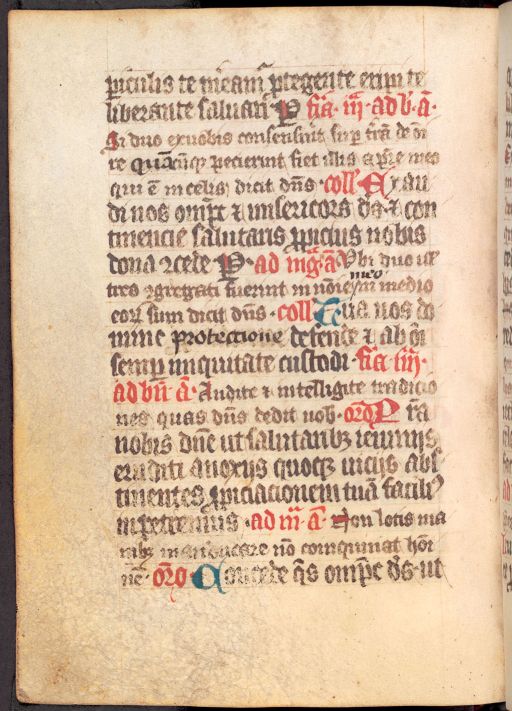 piculis te meam᷑ ptegente eripi te
liberante saluari P fia · iii · ad b · a ·
Si duo ex uobis consenserint sup trā de oi
re quācūqȝ pecierint fiet illis a pre meo
qui ē in celis dicit dns · coll · Exau
di nos omps ⁊ misericors ds · ⁊ con
tinencie salutaris ppicius nobis
dona ꝯcede P · ad mg · a Vbi duo uł
tres ꝯgregati fuerint in noīe meo in medio
eoꝝ sum dicit dns · coll Tua nos do
mine protectione defende ⁊ ab oi
semp iniquitate custodi · fia iiii ·
ad bn̄ a · Audite ⁊ intelligite tradicio
nes quas dns dedit uob · oro Pr̄a
nobis dne ut salutaribȝ ieiunijs
eruditi a noxijs quoqȝ uicijs abs
tinentes ppiciacionem tuā facili᷒
inpetremus · ad m̄ · a · Non lotis ma
nibȝ manducare nō coinquinat hoī
nē · oro · Concede qs omps ds · ut